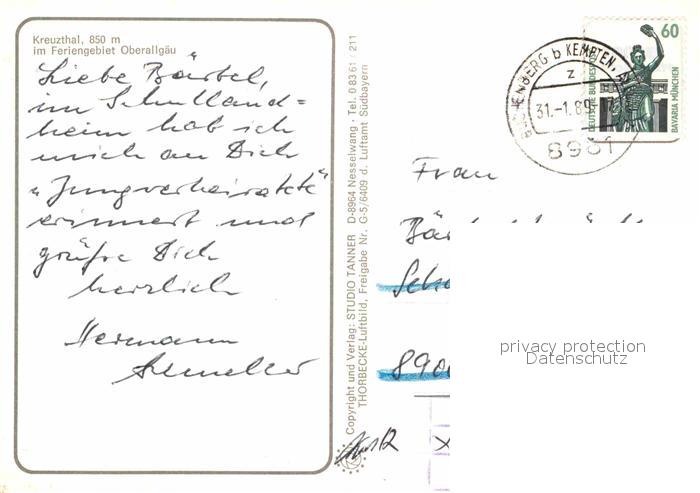 Kreuzthal, 850 m
im Feriengebiet Oberallgäu
Liebe Bärbel,
im Schulland=
heim hab ich
mich an Dich
"Jungverheiratete"
erinnert und
grüße Dich
herzlich
Hermann
Copyright und Verlag: STUDIO TANNER D-8964 Nesselwang · Tel. 0 83 61 / 211
THORBECKE-Luftbild, Freigabe Nr. G-5/6409 d. Luftamt Südbayern
BERG b KEMPTEN
z
31.-1.89
8961
60
DEUTSCHE BUNDESPOST
BAVARIA MÜNCHEN
Frau
privacy protection
Datenschutz